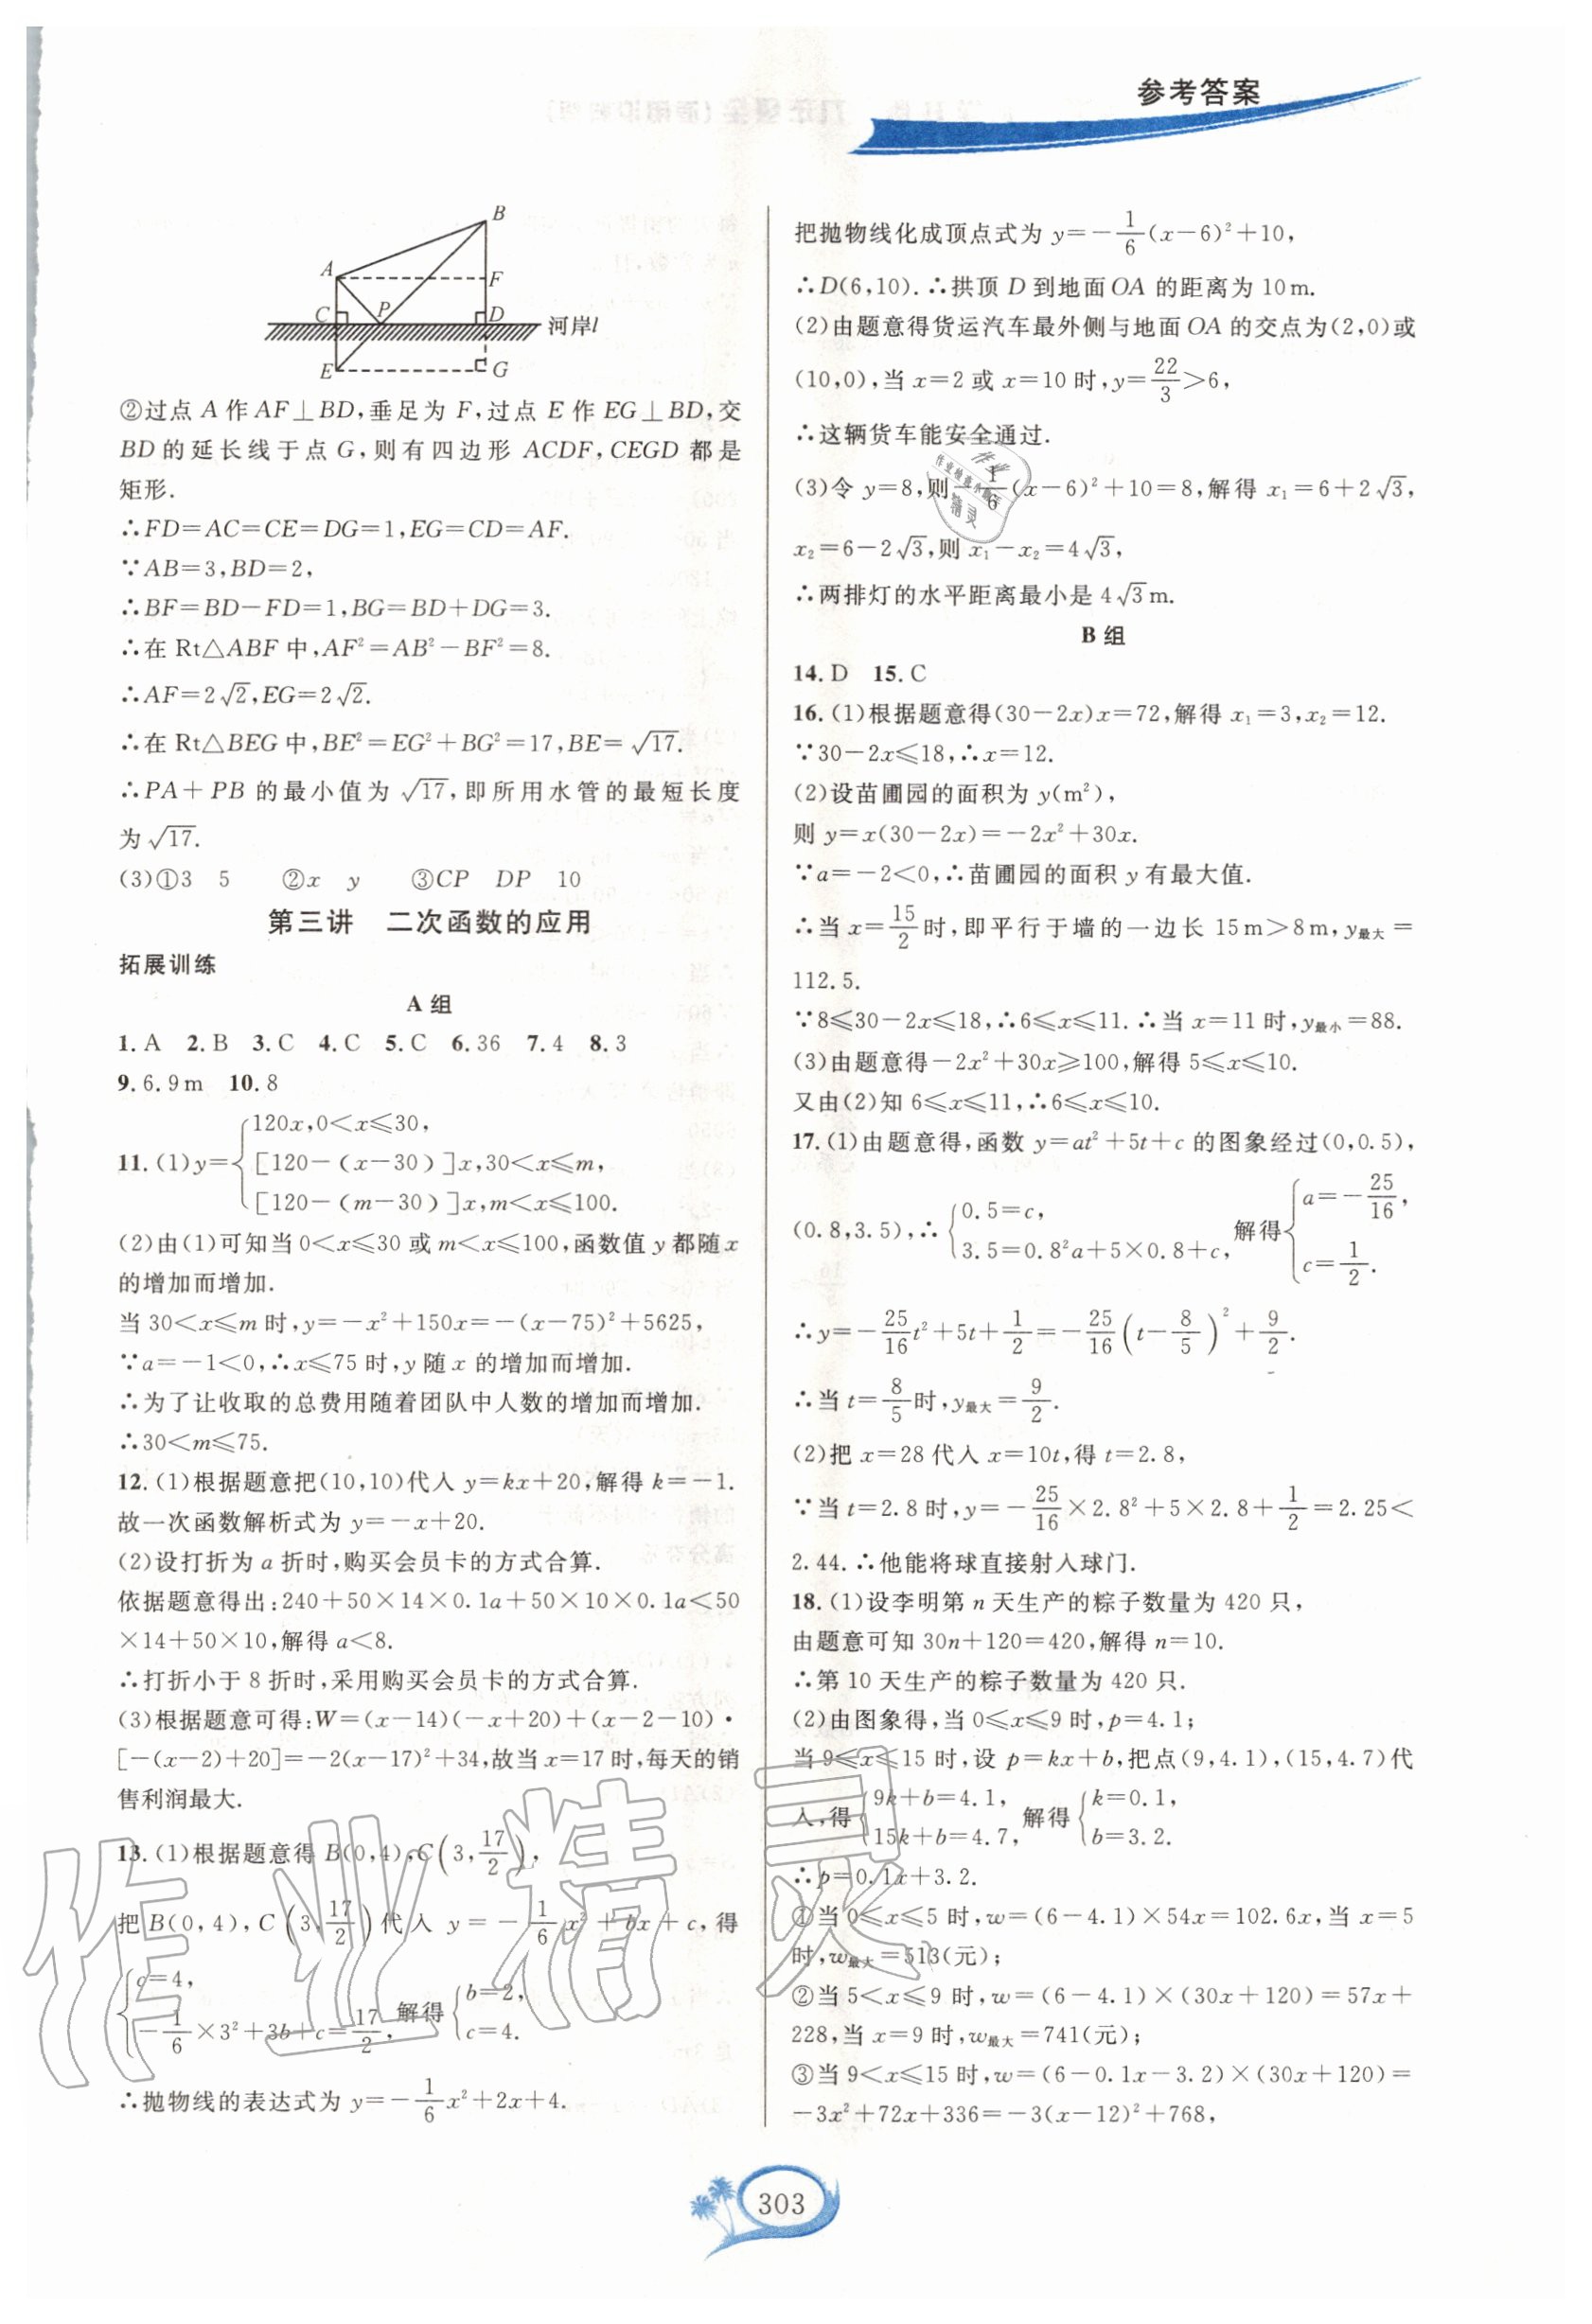 参考答案
B
A
F
C
P
D
河岸l
E
G
②过点 A 作 AF⊥BD,垂足为 F,过点 E 作 EG⊥BD,交
BD 的延长线于点 G,则有四边形 ACDF,CEGD 都是
矩形.
∴FD=AC=CE=DG=1,EG=CD=AF.
∵AB=3,BD=2,
∴BF=BD-FD=1,BG=BD+DG=3.
∴在 Rt△ABF 中,AF²=AB²-BF²=8.
∴AF=2√2,EG=2√2.
∴在 Rt△BEG 中,BE²=EG²+BG²=17,BE=√17.
∴PA+PB 的最小值为 √17,即所用水管的最短长度
为√17.
(3)①3 5 ②x y ③CP DP 10
第三讲 二次函数的应用
拓展训练
A 组
1.A 2.B 3.C 4.C 5.C 6.36 7.4 8.3
9.6.9m 10.8
11.(1)y={120x,0<x≤30,
[120-(x-30)]x,30<x≤m,
[120-(m-30)]x,m<x≤100.
(2)由(1)可知当 0<x≤30 或 m<x≤100,函数值 y 都随 x
的增加而增加.
当 30<x≤m 时,y=-x²+150x=-(x-75)²+5625,
∵a=-1<0,∴x≤75 时,y 随 x 的增加而增加.
∴为了让收取的总费用随着团队中人数的增加而增加.
∴30<m≤75.
12.(1)根据题意把(10,10)代入 y=kx+20,解得 k=-1.
故一次函数解析式为 y=-x+20.
(2)设打折为 a 折时,购买会员卡的方式合算.
依据题意得出:240+50×14×0.1a+50×10×0.1a<50
×14+50×10,解得 a<8.
∴打折小于 8 折时,采用购买会员卡的方式合算.
(3)根据题意可得:W=(x-14)(-x+20)+(x-2-10)·
[-(x-2)+20]=-2(x-17)²+34,故当 x=17 时,每天的销
售利润最大.
13.(1)根据题意得 B(0,4),C(3,17/2),
把 B(0,4),C(3,17/2)代入 y=-1/6x²+bx+c,得
{c=4,
-1/6×3²+3b+c=17/2,解得{b=2,
c=4.
∴抛物线的表达式为 y=-1/6x²+2x+4.
把抛物线化成顶点式为 y=-1/6(x-6)²+10,
∴D(6,10).∴拱顶 D 到地面 OA 的距离为 10m.
(2)由题意得货运汽车最外侧与地面 OA 的交点为(2,0)或
(10,0),当 x=2 或 x=10 时,y=22/3>6,
∴这辆货车能安全通过.
(3)令 y=8,则-1/6(x-6)²+10=8,解得 x₁=6+2√3,
x₂=6-2√3,则 x₁-x₂=4√3,
∴两排灯的水平距离最小是 4√3m.
B 组
14.D 15.C
16.(1)根据题意得(30-2x)x=72,解得 x₁=3,x₂=12.
∵30-2x≤18,∴x=12.
(2)设苗圃园的面积为 y(m²),
则 y=x(30-2x)=-2x²+30x.
∵a=-2<0,∴苗圃园的面积 y 有最大值.
∴当 x=15/2时,即平行于墙的一边长 15m>8m,y最大=
112.5.
∵8≤30-2x≤18,∴6≤x≤11.∴当 x=11 时,y最小=88.
(3)由题意得-2x²+30x≥100,解得 5≤x≤10.
又由(2)知 6≤x≤11,∴6≤x≤10.
17.(1)由题意得,函数 y=at²+5t+c 的图象经过(0,0.5),
(0.8,3.5),∴{0.5=c,
3.5=0.8²a+5×0.8+c,解得{a=-25/16,
c=1/2.
∴y=-25/16t²+5t+1/2=-25/16(t-8/5)²+9/2.
∴当 t=8/5时,y最大=9/2.
(2)把 x=28 代入 x=10t,得 t=2.8,
∵当 t=2.8 时,y=-25/16×2.8²+5×2.8+1/2=2.25<
2.44.∴他能将球直接射入球门.
18.(1)设李明第 n 天生产的粽子数量为 420 只,
由题意可知 30n+120=420,解得 n=10.
∴第 10 天生产的粽子数量为 420 只.
(2)由图象得,当 0≤x≤9 时,p=4.1;
当 9≤x≤15 时,设 p=kx+b,把点(9,4.1),(15,4.7)代
入,得{9k+b=4.1,
15k+b=4.7,解得{k=0.1,
b=3.2.
∴p=0.1x+3.2.
①当 0≤x≤5 时,w=(6-4.1)×54x=102.6x,当 x=5
时,w最大=513(元);
②当 5<x≤9 时,w=(6-4.1)×(30x+120)=57x+
228,当 x=9 时,w最大=741(元);
③当 9<x≤15 时,w=(6-0.1x-3.2)×(30x+120)=
-3x²+72x+336=-3(x-12)²+768,
303
作业精灵